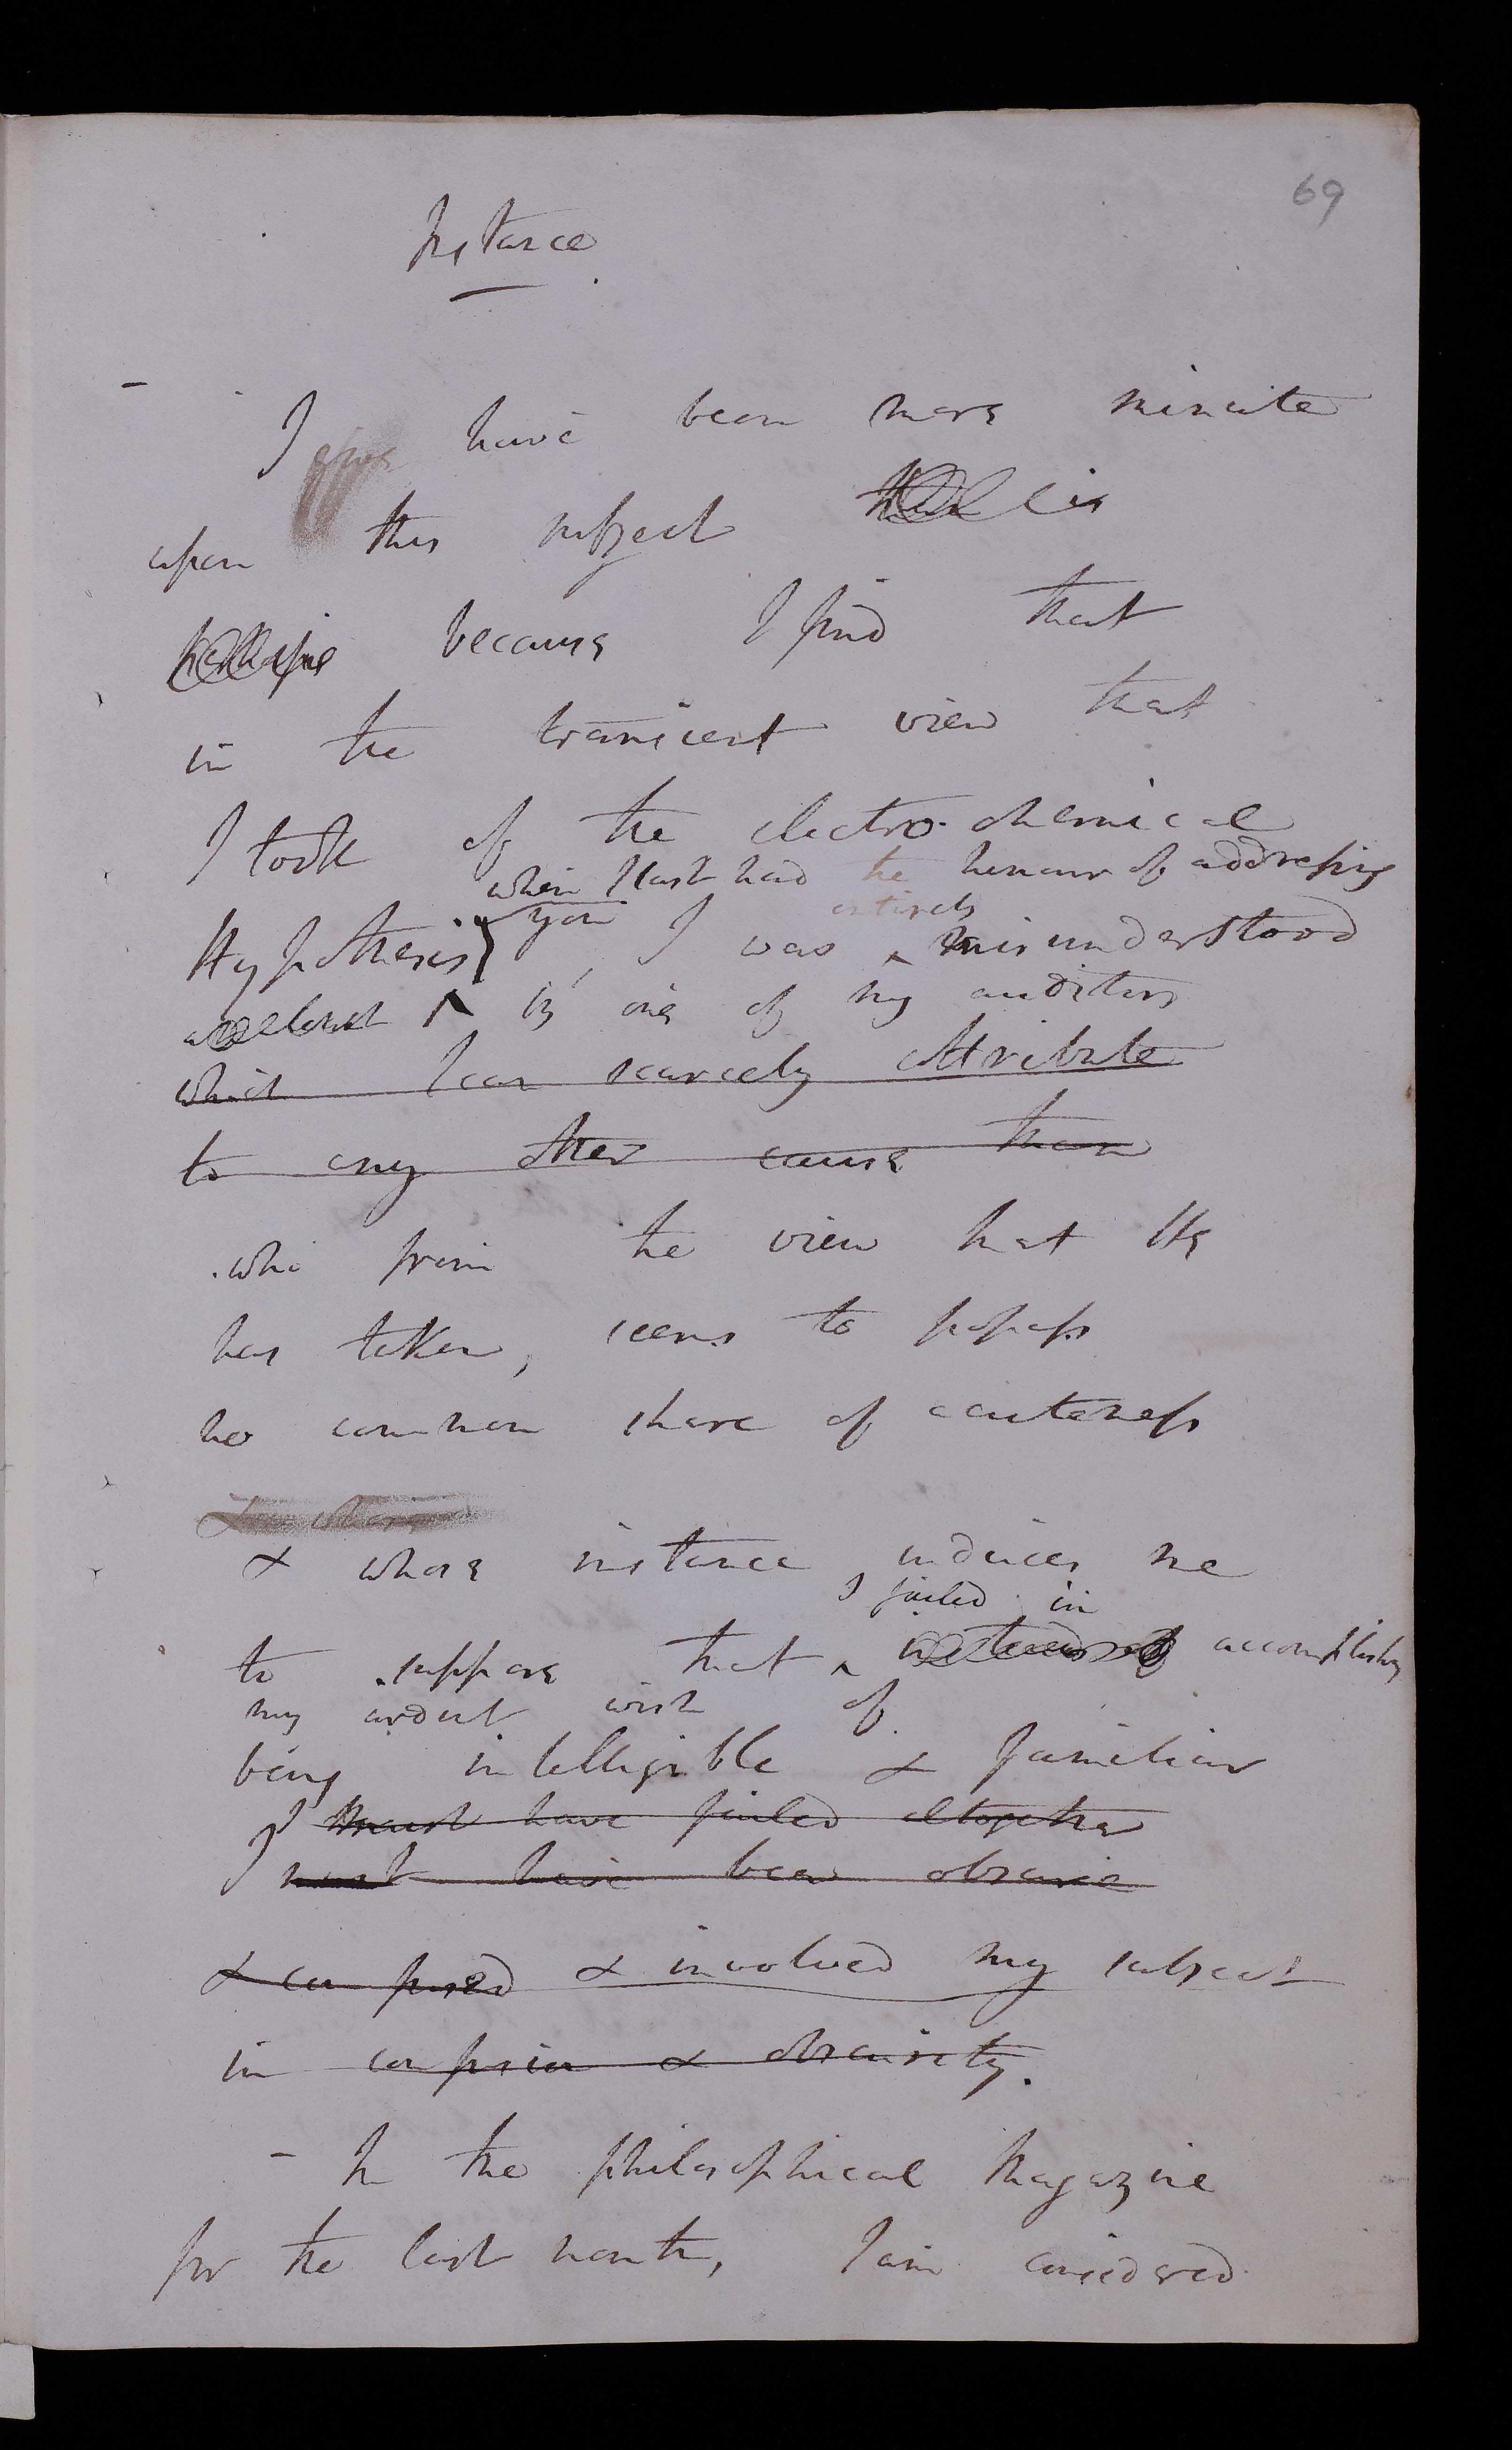 69
Instance
- I have been more minute
upon this subject
because I find that
in the transient view that
I took of the electro-chemical
when I last had the honour of addressing
Hypothesis you I was entirely misunderstood
at least by one of my auditors
which I can scarcely attribute
to any other cause than
who from the view that He
has taken, seems to possess
no common share of acuteness
& whose instance induces me
I failed in
to suppose that instead of accomplishing
my ardent wish of
being intelligible & familiar
I must have failed altogether
I must have been obscure
& confused & involved my subject
in confusion & obscurity.
- In the philosophical Magazine
for the last month, I am considered